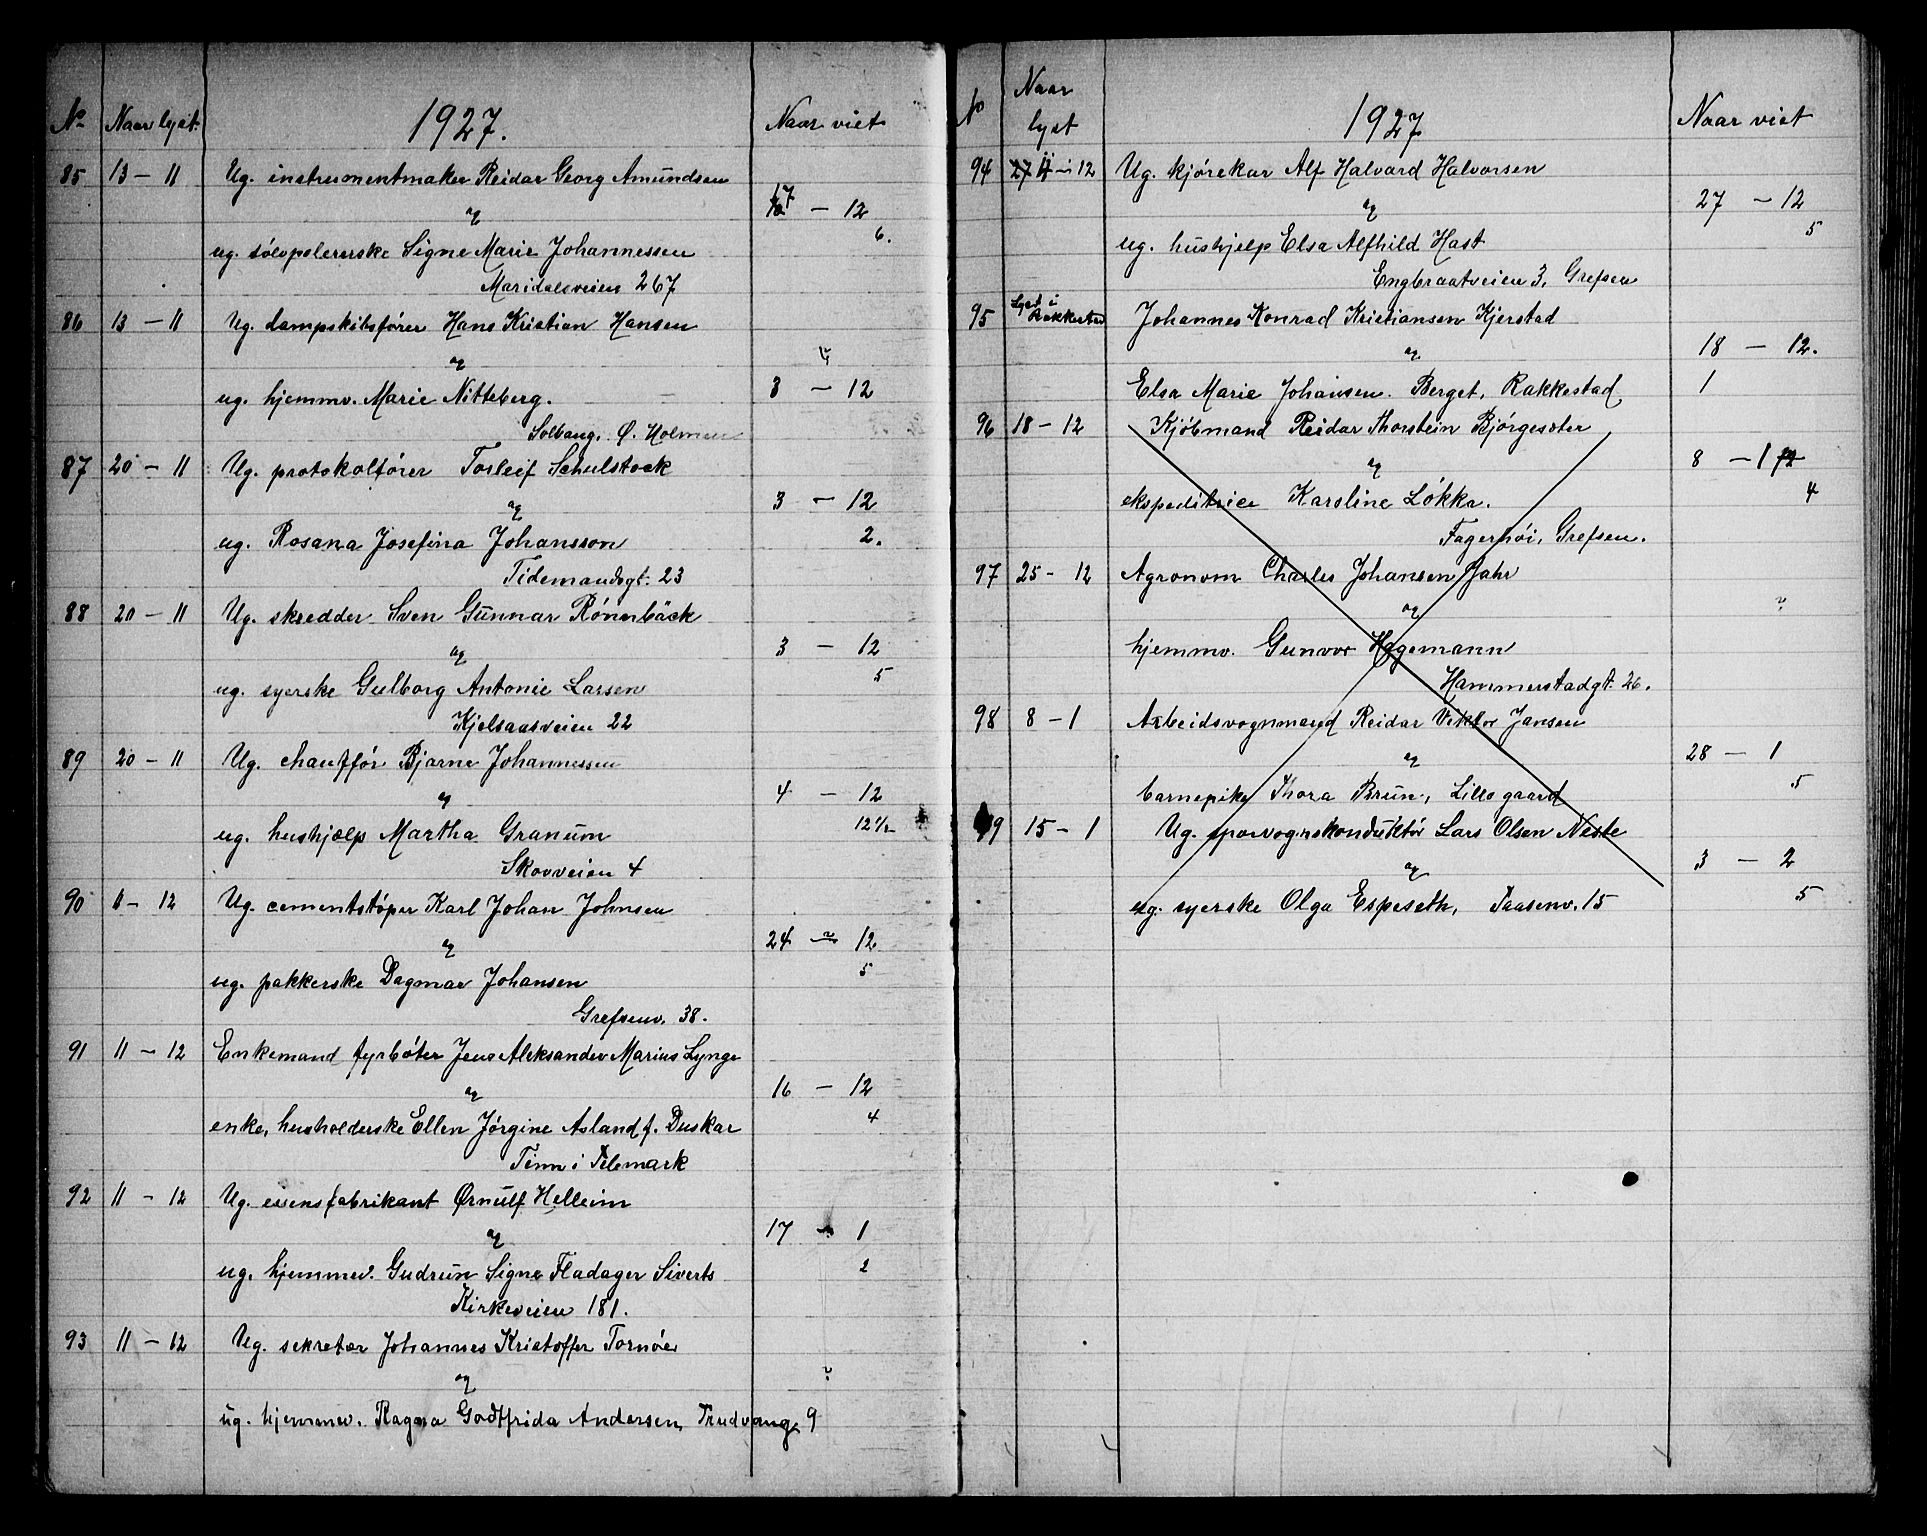 No Naar lyst 1927. Naar viet
85 13 - 11 Ug. instrumentmaker Reidar Georg Amundsen
og 17 - 12
ug. sølvpolererske Signe Marie Johannessen 6.
Maridalsveien 267
86 13 - 11 Ug. dampskibsfører Hans Kristian Hansen
og ?
ug. hjemmv. Marie Nitteberg. 3 - 12
Solbaug, Ø. Holmen
87 20 - 11 Ug. protokolfører Torleif Schulstock
og 3 - 12
ug. Rosana Josefina Johansson 2.
Tidemandsgt. 23
88 20 - 11 Ug. skredder Sven Gunnar Rönnbäck
og 3 - 12
ug. syerske Gulborg Antonie Larsen 5
Kjelsaasveien 22
89 20 - 11 Ug. chauffør Bjarne Johannessen
og 4 - 12
ug. hushjælp Martha Granum 12½
Skovveien 4
90 11 - 12 Ug. cementstøper Karl Johan Johnsen
og 24 - 12
ug. pakkerske Dagmar Johansen 5
Grefsenv. 38.
91 11 - 12 Enkemand fyrbøter Jens Aleksander Marius Lynge
og 16 - 12
enke, husholderske Ellen Jørgine Asland f. Duskar 4
Tinn i Telemark
92 11 - 12 Ug. essensfabrikant Ørnulf Helleim
og 17 - 1
ug. hjemmev. Gudrun Signe Fladager Siverts 2
Kirkeveien 181.
93 11 - 12 Ug. sekretær Johannes Kristoffer Tornøe
og ?
ug. hjemmev. Ragna Godtfrida Andersen, Trudvang 9
No Naar lyst 1927 Naar viet
94 27 11 - 12 Ug. kjørekar Alf Halvard Halvorsen
og 27 - 12
ug. hushjelp Elsa Alfhild Hast 5
Engbraatveien 3, Grefsen
95 Lyst i Rakkestad Johannes Konrad Kristiansen Kjerstad
og 18 - 12.
Elsa Marie Johansen. Berget, Rakkestad 1
96 18 - 12 Kjøbmand Reidar Thorstein Bjørgesæter
og 8 - 1 12
ekspeditrice Karoline Løkka. 4
Fagerhøi, Grefsen.
97 25 - 12 Agronom Charles Johansen Jahr
og ?
hjemmv. Gunvor Hagemann
Hammerstadgt. 26.
98 8 - 1 Arbeidsvognmand Reidar Viktor Jansen
og 28 - 1
barnepike Thora Brun, Lillo gaard 5
99 15 - 1 Ug. sporvognskonduktør Lars Olsen Neste
og 3 - 2
ug. syerske Olga Espeseth, Taasenv. 15 5